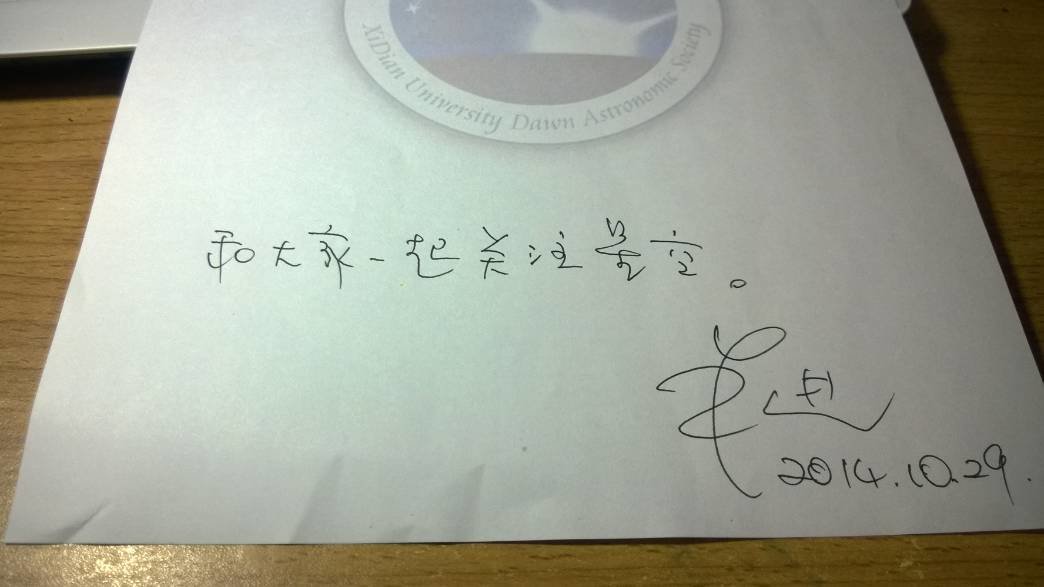 XiDian University Dawn Astronomic Society
和大家一起关注星空。
2014.10.29.